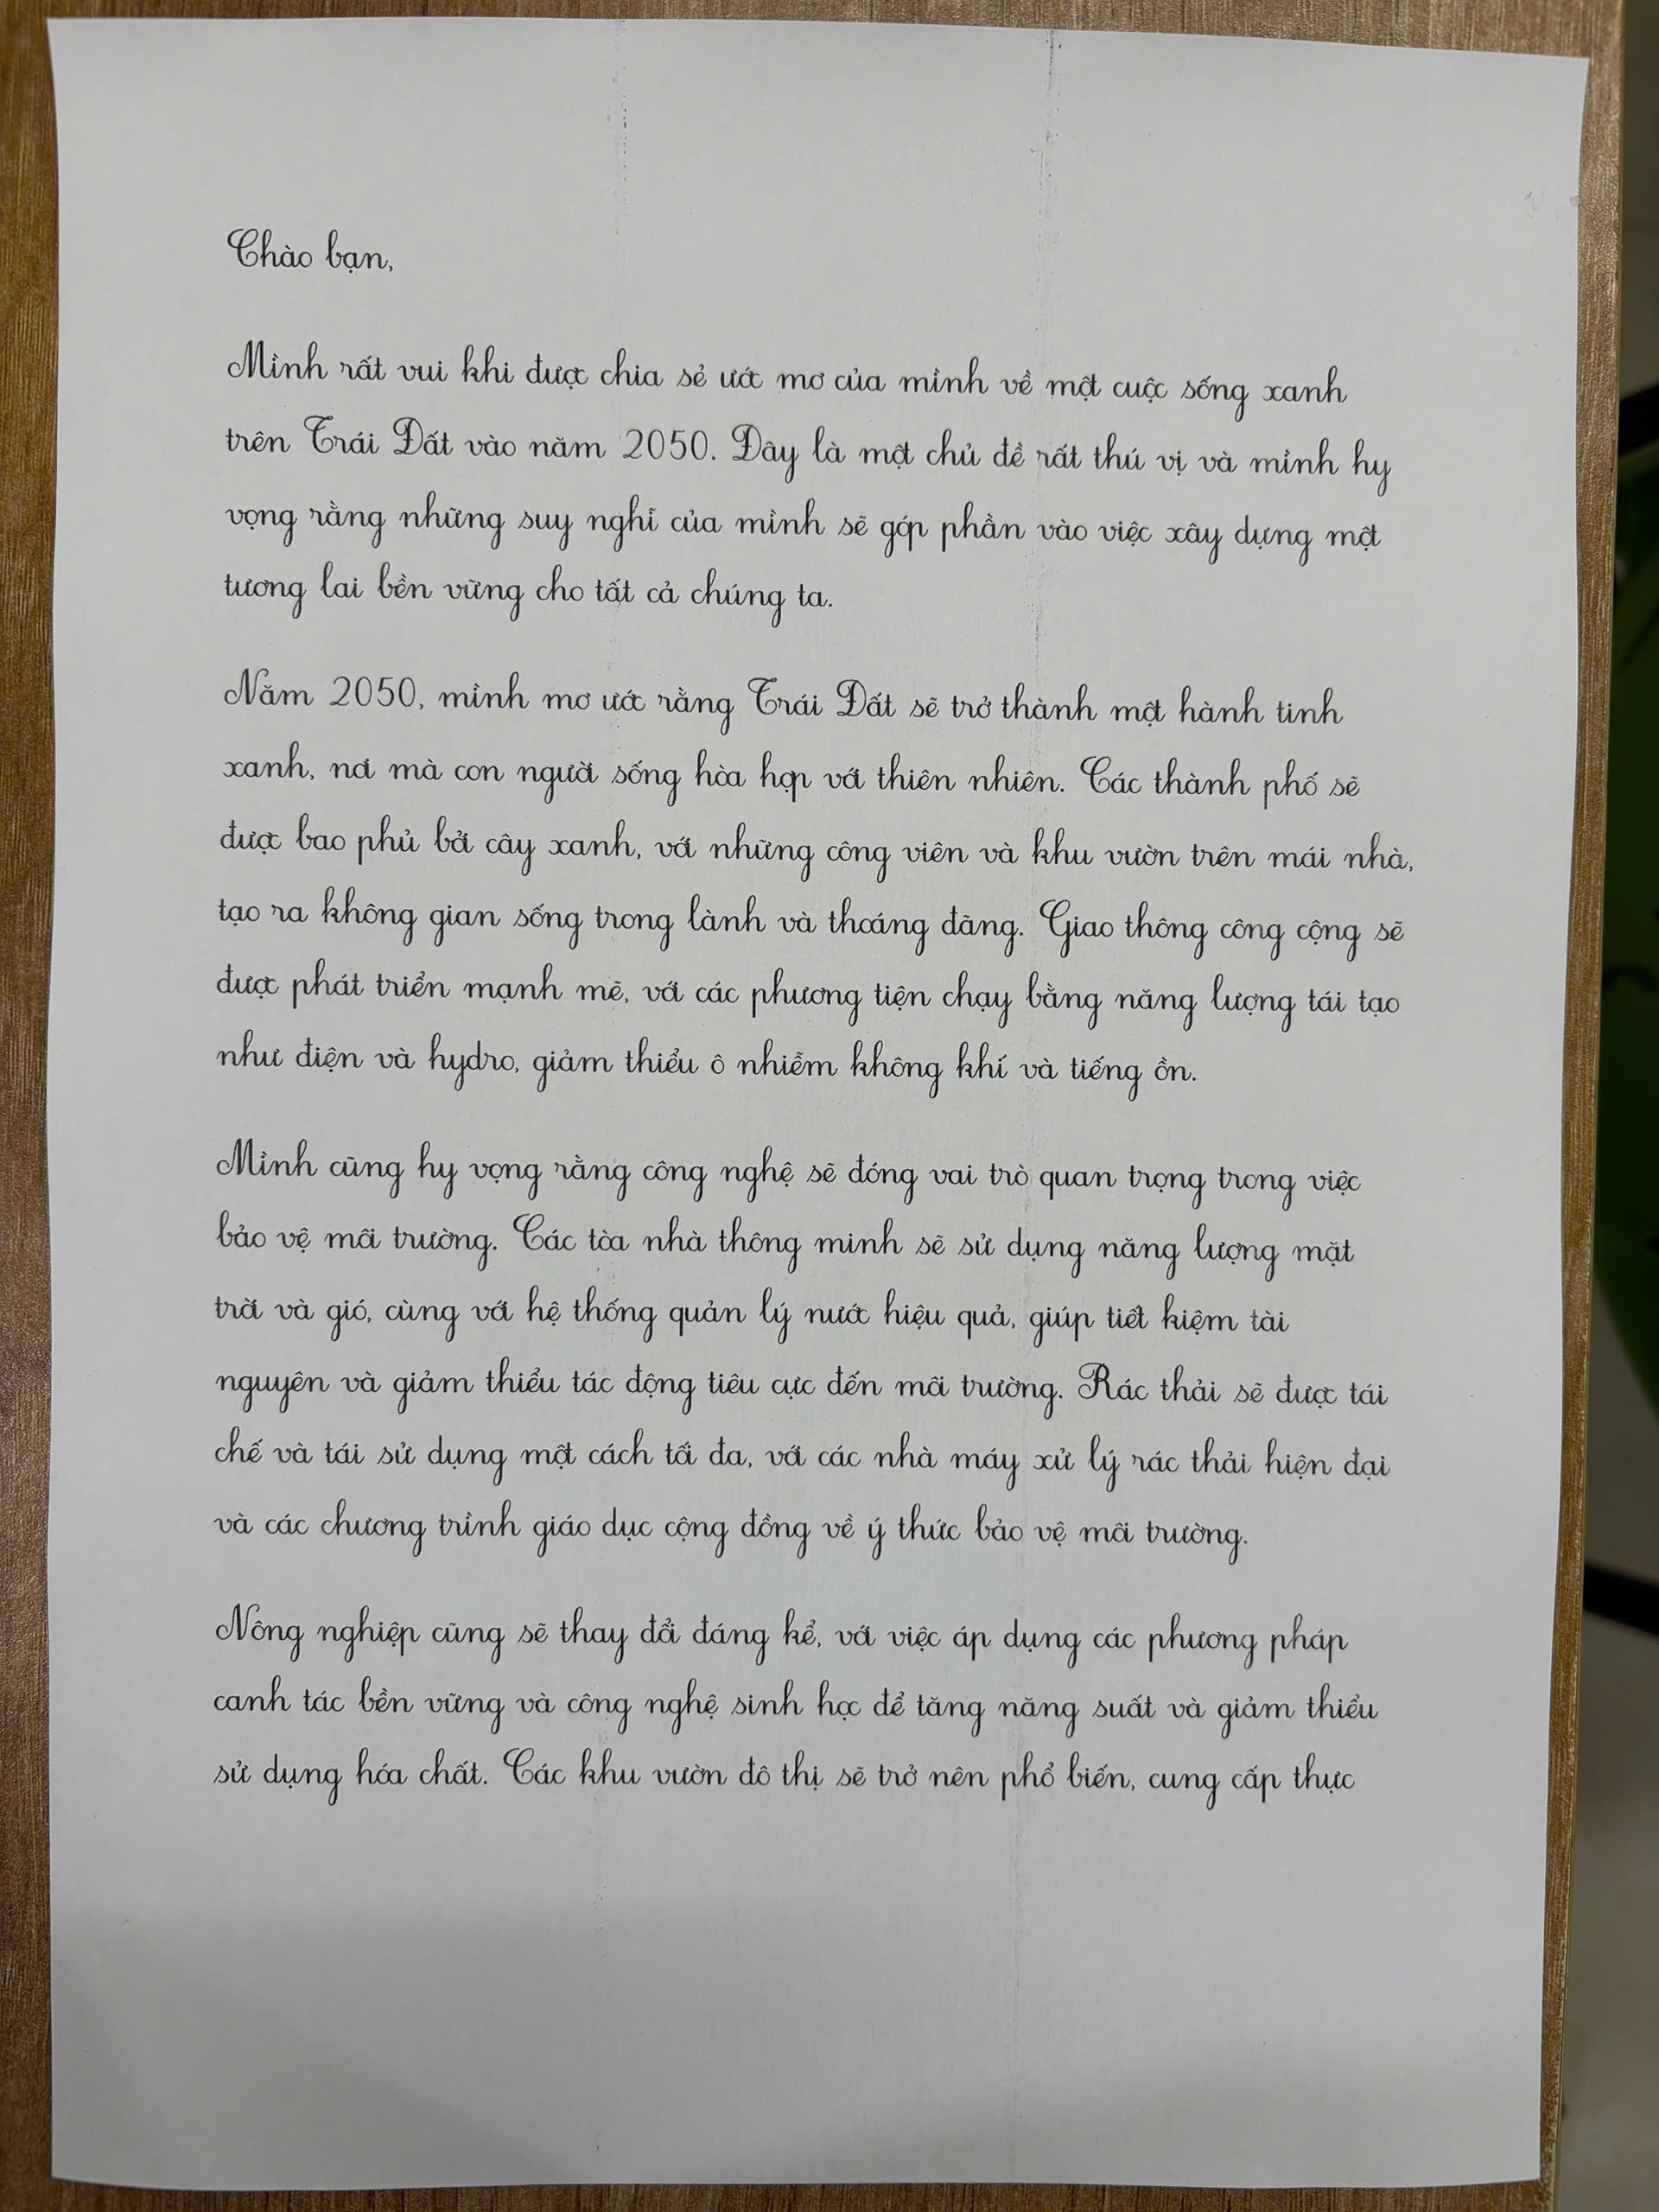 Chào bạn,
Mình rất vui khi được chia sẻ ước mơ của mình về một cuộc sống xanh
trên Trái Đất vào năm 2050. Đây là một chủ đề rất thú vị và mình hy
vọng rằng những suy nghĩ của mình sẽ góp phần vào việc xây dựng một
tương lai bền vững cho tất cả chúng ta.
Năm 2050, mình mơ ước rằng Trái Đất sẽ trở thành một hành tinh
xanh, nơi mà con người sống hòa hợp với thiên nhiên. Các thành phố sẽ
được bao phủ bởi cây xanh, với những công viên và khu vườn trên mái nhà,
tạo ra không gian sống trong lành và thoáng đãng. Giao thông công cộng sẽ
được phát triển mạnh mẽ, với các phương tiện chạy bằng năng lượng tái tạo
như điện và hydro, giảm thiểu ô nhiễm không khí và tiếng ồn.
Mình cũng hy vọng rằng công nghệ sẽ đóng vai trò quan trọng trong việc
bảo vệ môi trường. Các tòa nhà thông minh sẽ sử dụng năng lượng mặt
trời và gió, cùng với hệ thống quản lý nước hiệu quả, giúp tiết kiệm tài
nguyên và giảm thiểu tác động tiêu cực đến môi trường. Rác thải sẽ được tái
chế và tái sử dụng một cách tối đa, với các nhà máy xử lý rác thải hiện đại
và các chương trình giáo dục cộng đồng về ý thức bảo vệ môi trường.
Nông nghiệp cũng sẽ thay đổi đáng kể, với việc áp dụng các phương pháp
canh tác bền vững và công nghệ sinh học để tăng năng suất và giảm thiểu
sử dụng hóa chất. Các khu vườn đô thị sẽ trở nên phổ biến, cung cấp thực